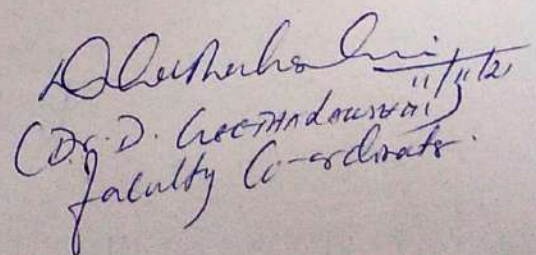 11/11/21
(Dr. D. GEETHALAKSHMI)
Faculty Co-ordinator.